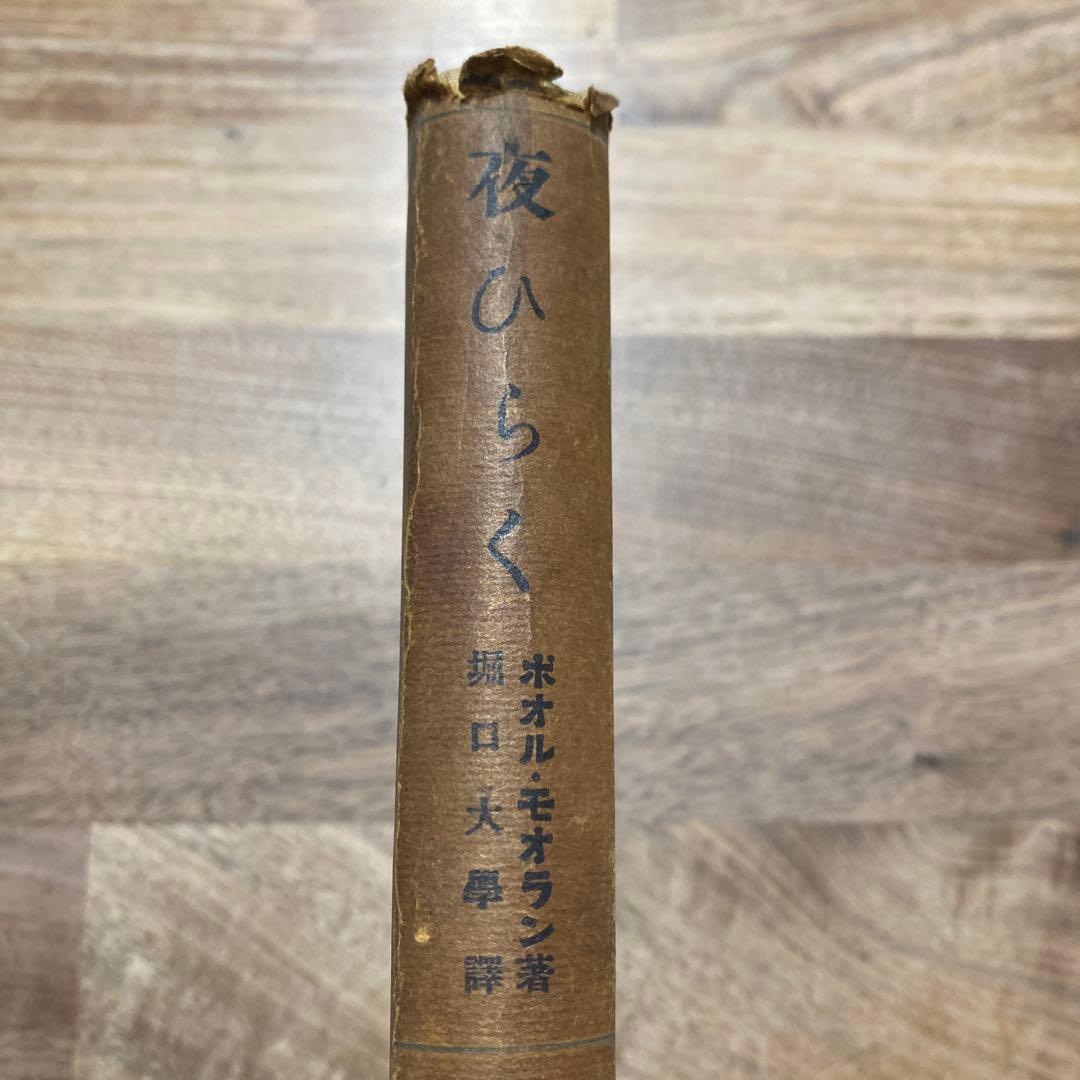 夜ひらく
ポオル・モオラン著
堀口大學譯